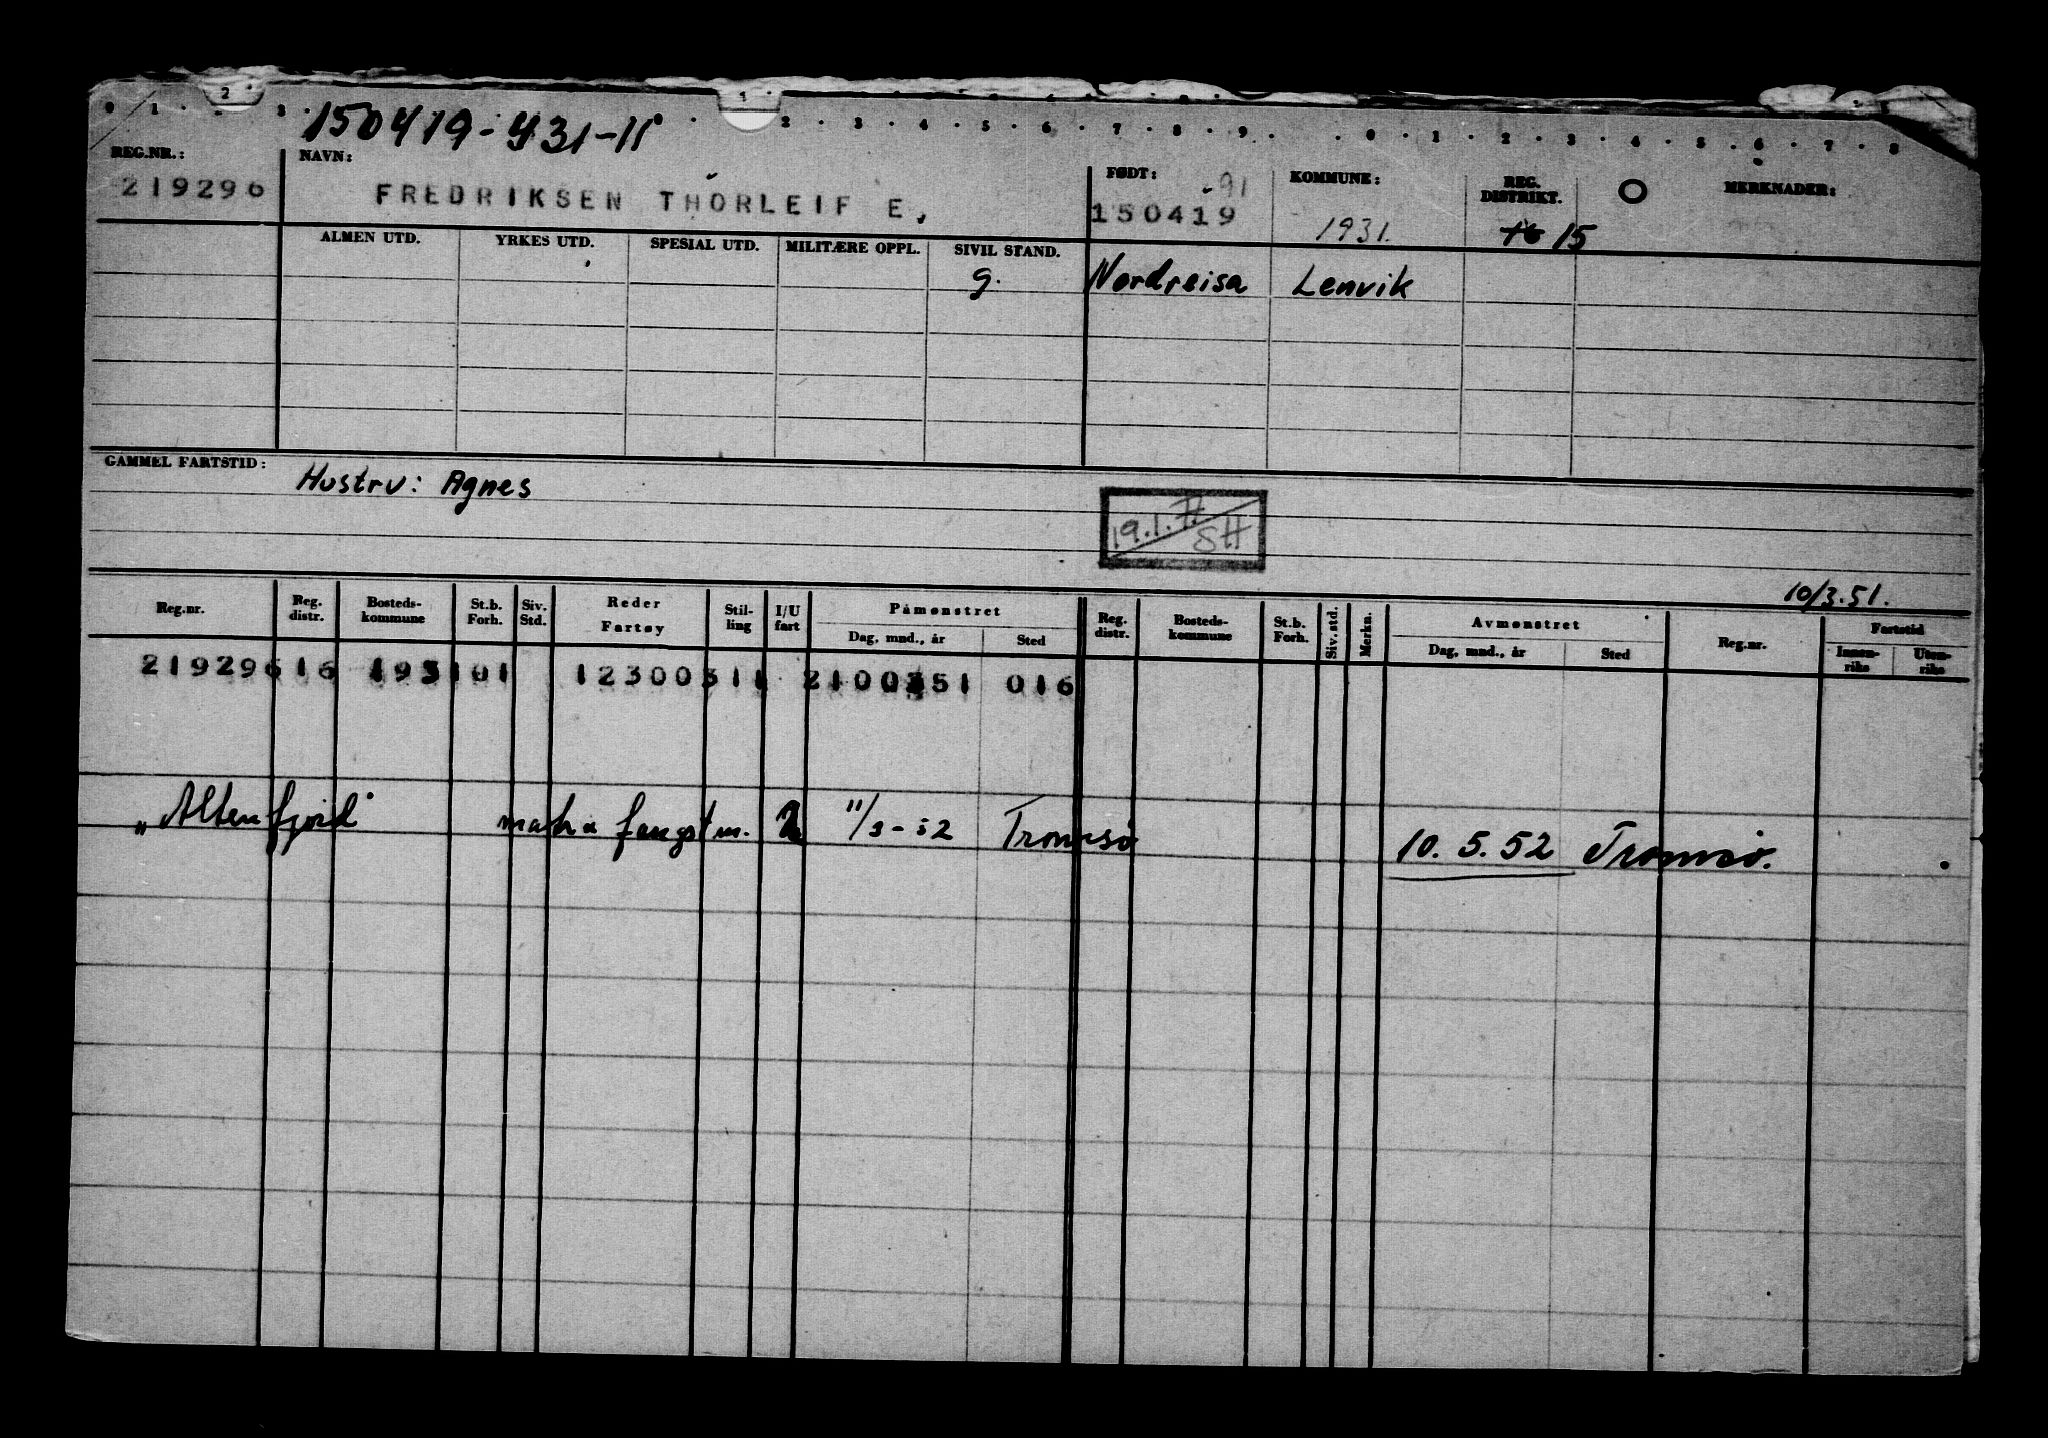 0 1 . 2 . 3 . 1 . 2 . 3 . 4 . 5 . 6 . 7 . 8 . 9 . . 0 . 1 . 2 . 3 . 4 . 5 . 6 . 7 . 8
150419-431-11
REG.NR.: NAVN: FØDT: KOMMUNE: REG. DISTRIKT. O MERKNADER:
219296 FREDRIKSEN THORLEIF E. 150419 -91 1931. 16 15
ALMEN UTD. YRKES UTD. SPESIAL UTD. MILITÆRE OPPL. SIVIL STAND.
g. Nordreisa Lenvik
GAMMEL FARTSTID: Hustru: Agnes
19.1.77 SH
10/3.51.
Reg.nr. Reg. distr. Bosteds- kommune St.b. Forh. Siv. Std. Reder Fartøy Stil- ling I/U fart Påmønstret Dag, mnd., år Sted Reg. distr. Bosteds- kommune St.b. Forh. Siv. std. Merkn. Avmønstret Dag, mnd., år Sted Reg.nr. Fartstid Innen- riks Uten- riks
219296 16 1931 01 12300 311 2100351 016
"Altenfjord" fangstm. 2 11/3-52 Tromsø 10.5.52 Tromsø.